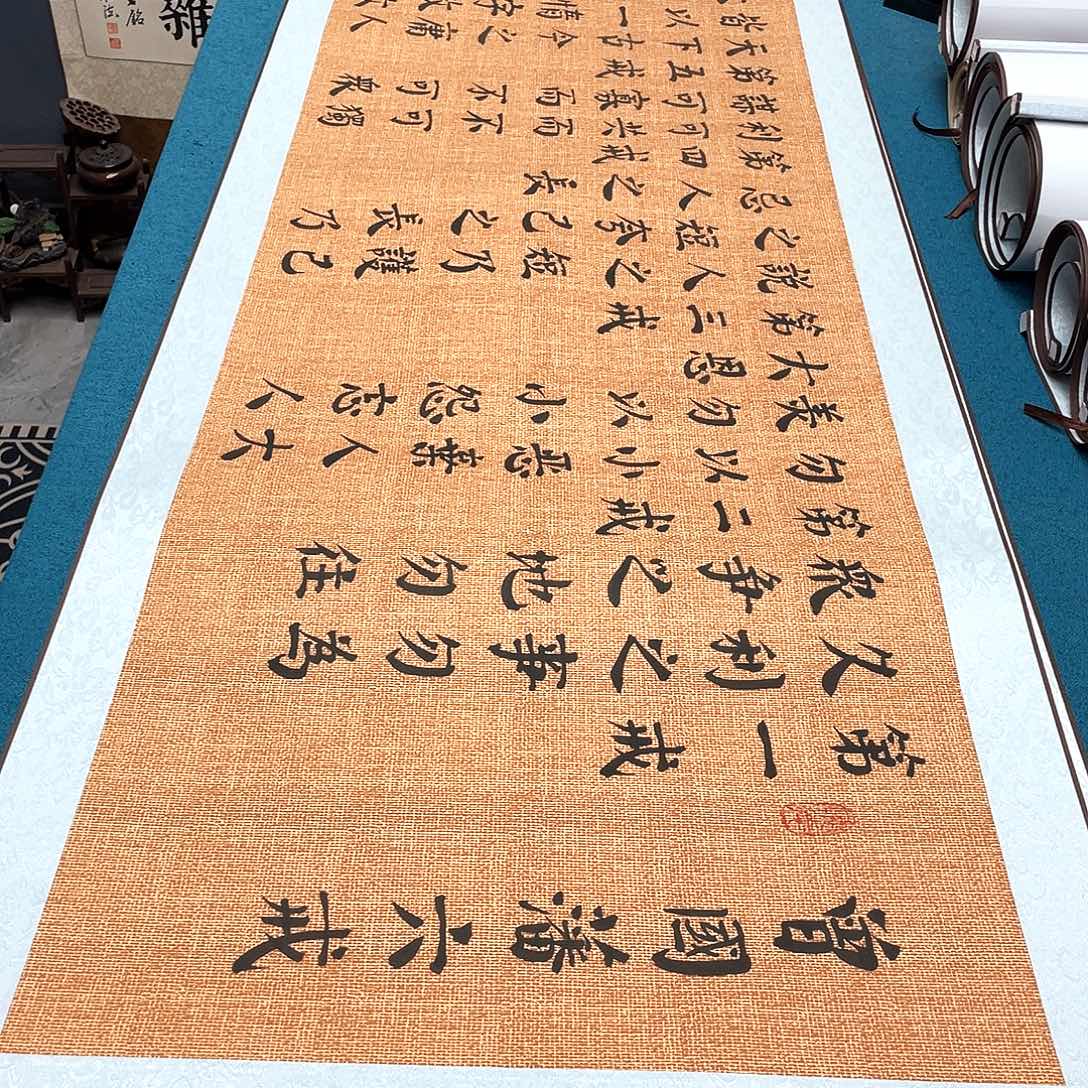 曾國藩六戒
第一戒
久利之事勿爲
眾爭之地勿往
第二戒
勿以小惡棄人大
美勿以小怨忘人
大恩
第三戒
說人之短乃護己
之短夸己之長乃
忌人之長
第四戒
利可共而不可獨
謀可寡而不可眾
第五戒
天下古今之庸人
皆以一惰字